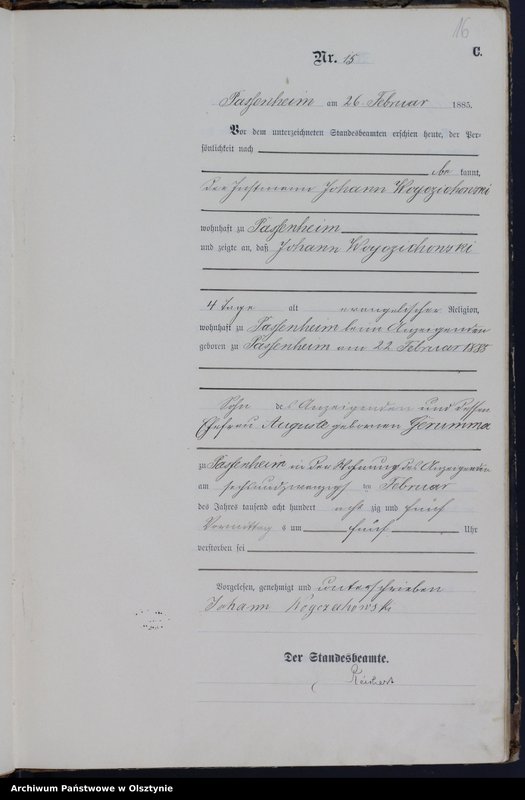 16
C.
Nr. 15
Passenheim am 26 Februar 1885.
Vor dem unterzeichneten Standesbeamten erschien heute, der Per-
sönlichkeit nach
be kannt,
der Instmann Johann Wogczichowski
wohnhaft zu Passenheim
und zeigte an, daß Johann Wogczichowski
4 Tage alt evangelischer Religion,
wohnhaft zu Passenheim beim Anzeigenden
geboren zu Passenheim am 22 Februar 1885
Sohn des Anzeigenden und dessen
Ehefrau Auguste geborenen
zu Passenheim in der Wohnung des Anzeigenden
am sechsundzwanzigsten Februar
des Jahres tausend acht hundert acht zig und fünf
Vormittag s um fünf Uhr
verstorben sei
Vorgelesen, genehmigt und unterschrieben
Johann Wogczichowski
Der Standesbeamte.
Archiwum Państwowe w Olsztynie